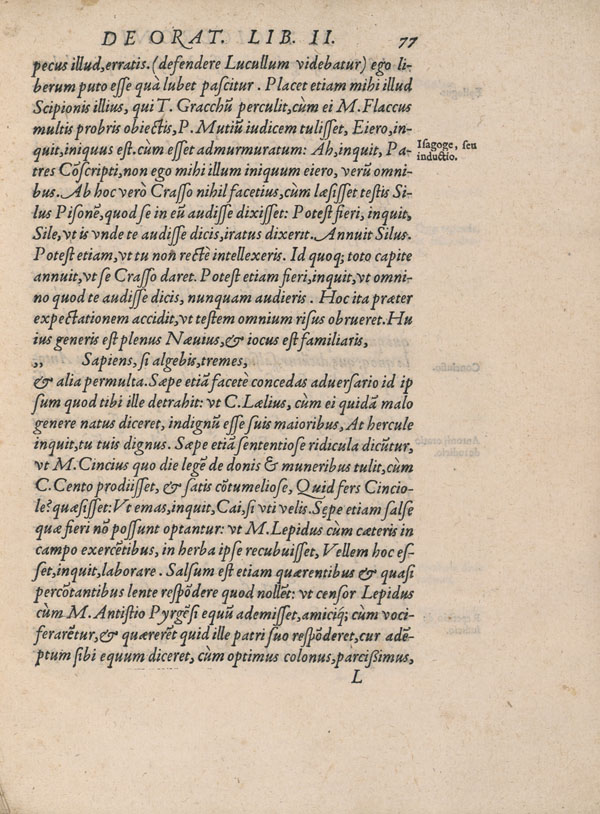 DE ORAT. LIB. II. 77
pecus illud, erratis. (defendere Lucullum videbatur) ego li-
berum puto esse quà lubet pascitur. Placet etiam mihi illud
Scipionis illius, qui T. Gracchũ perculit, cùm ei M. Flaccus
multis probris obiectis, P. Mutiũ iudicem tulisset, Eiero, in-
quit, iniquus est. cùm esset admurmuratum: Ah, inquit, Pa-
Isagoge, seu
inductio.
tres Cõscripti, non ego mihi illum iniquum eiero, verũ omni-
bus. Ab hoc verò Crasso nihil facetius, cùm læsisset testis Si-
lus Pisonẽ, quod se in eũ audisse dixisset: Potest fieri, inquit,
Sile, vt is vnde te audisse dicis, iratus dixerit. Annuit Silus.
Potest etiam, vt tu non rectè intellexeris. Id quoq; toto capite
annuit, vt se Crasso daret. Potest etiam fieri, inquit, vt omni-
no quod te audisse dicis, nunquam audieris. Hoc ita præter
expectationem accidit, vt testem omnium risus obrueret. Hu
ius generis est plenus Nævius, & iocus est familiaris,
„ Sapiens, si algebis, tremes,
& alia permulta. Sæpe etiã facetè concedas adversario id ip
sum quod tibi ille detrahit: vt C. Lælius, cùm ei quidã malo
genere natus diceret, indignũ esse suis maioribus, At hercule
inquit, tu tuis dignus. Sæpe etiã sententiose ridicula dicũtur,
vt M. Cincius quo die legẽ de donis & muneribus tulit, cùm
C. Cento prodiisset, & satis cõtumeliose, Quid fers Cincio-
le? quæsisset: Vt emas, inquit, Cai, si vti velis. Sepe etiam salse
quæ fieri nõ possunt optantur: vt M. Lepidus cùm cæteris in
campo exercẽtibus, in herba ipse recubuisset, Vellem hoc es-
set, inquit, laborare. Salsum est etiam quærentibus & quasi
percõtantibus lente respõdere quod nollẽt: vt censor Lepidus
cùm M. Antistio Pyrgẽsi equũ ademisset, amiciq; cùm voci-
ferarẽtur, & quærerẽt quid ille patri suo respõderet, cur adẽ-
ptum sibi equum diceret, cùm optimus colonus, parcissimus,
L